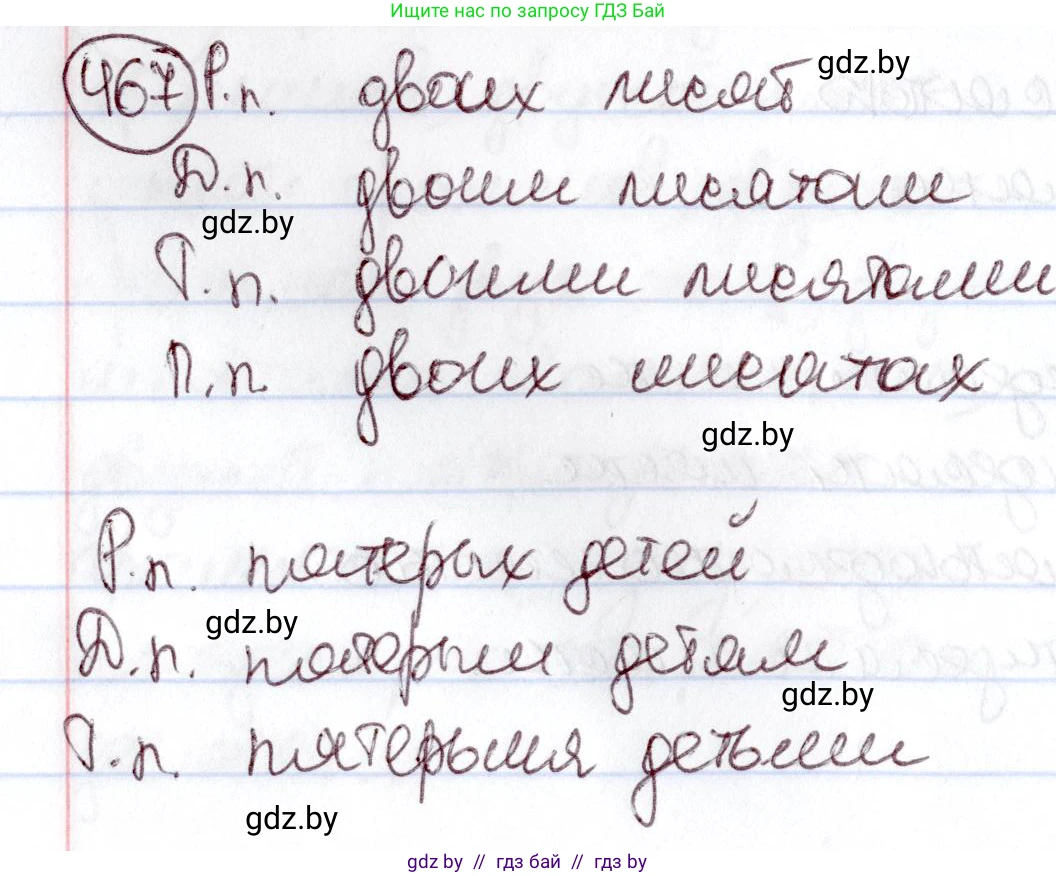 Ищите нас по запросу ГДЗ Бай
467 Р.п. двоих лисят gdz.by
Д.п. двоим лисятам
gdz.by
Т.п. двоими лисятами
П.п. двоих лисятах
gdz.by
Р.п. пятерых детей
gdz.by
Д.п. пятерым детям
gdz.by
Т.п. пятерымя детьми
gdz.by
gdz by // гдз бай // гдз by